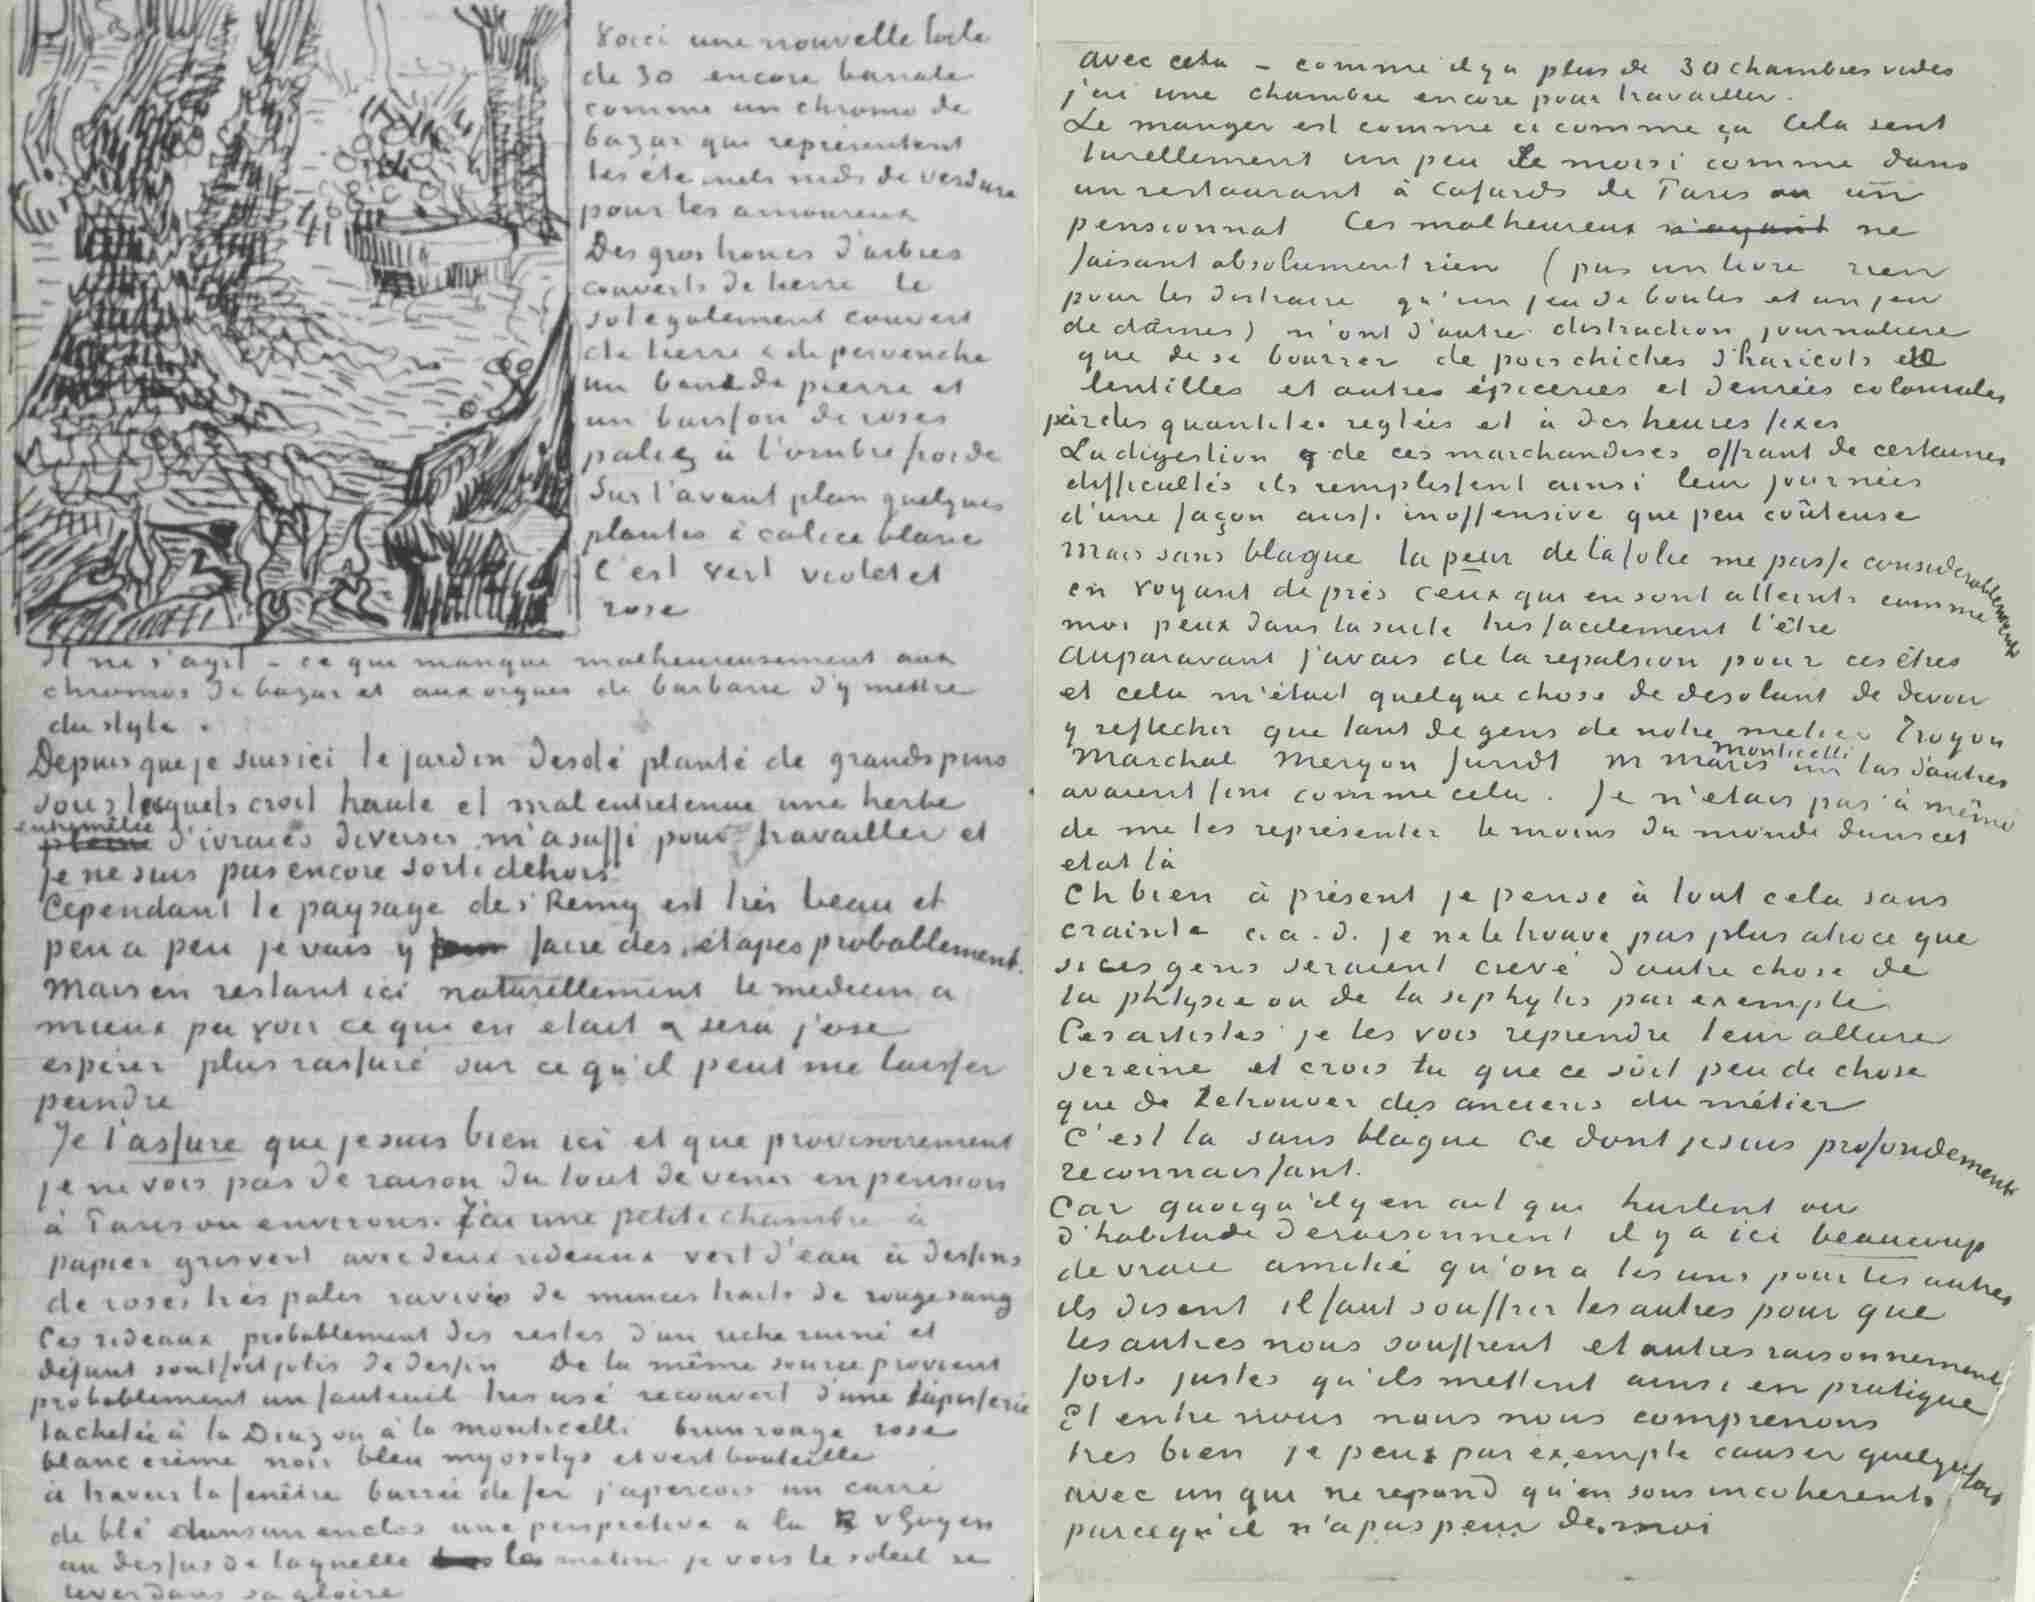 Voici une nouvelle toile
de 30 encore banale
comme un chromo de
bazar qui représentent
les éternels nids de verdure
pour les amoureux
Des gros troncs d'arbres
couverts de lierre le
sol egalement couvert
de lierre & de pervenche
un banc de pierre et
un buisson de roses
palies à l'ombre froide
Sur l'avant plan quelques
plantes à calice blanc
C'est vert violet et
rose
Il ne s'agit – ce qui manque malheureusement aux
chromos de bazar et aux orgues de barbarie d'y mettre
du style.
Depuis que je suis ici le jardin desolé planté de grands pins
sous lesquels croit haute et mal entretenue une herbe
entremêlée
pleine d'ivraies diverses m'a suffi pour travailler et
je ne suis pas encore sorti dehors.
Cependant le paysage de St Remy est très beau et
peu a peu je vais y faire des étapes probablement.
Mais en restant ici naturellement le medecin a
mieux pu voir ce qui en etait & sera j'ose
espérer plus rassuré sur ce qu'il peut me laisser
peindre
Je t'assure que je suis bien ici et que provisoirement
je ne vois pas de raison du tout de venir en pension
à Paris ou environs. J'ai une petite chambre à
papier gris vert avec deux rideaux vert d'eau à dessins
de roses très pales ravivés de minces traits de rouge sang
Ces rideaux probablement des restes d'un riche ruiné et
défunt sont fort jolis de dessin De la même source provient
probablement un fauteuil tres usé recouvert d'une tapisserie
tachetée à la Diaz ou à la Monticelli brun rouge rose
blanc crème noir bleu myosotys et vert bouteille
à travers la fenêtre barrée de fer j'aperçois un carré
de blé dans un enclos une perspective a la v Goyen
au dessus de laquelle les matins je vois le soleil se
lever dans sa gloire
avec cela – comme il y a plus de 30 chambres vides
j'ai une chambre encore pour travailler.
Le manger est comme ci comme ça Cela sent
turellement un peu le moisi comme dans
un restaurant à cafards de Paris ou un
pensionnat Ces malheureux n'ayant ne
faisant absolument rien (pas un livre rien
pour les distraire qu'un jeu de boules et un jeu
de dames) n'ont d'autre distraction journaliere
que de se bourrer de pois chiches d'haricots et
lentilles et autres épiceries et denrées coloniales
par des quantités reglées et à des heures fixes
La digestion de ces marchandises offrant de certaines
difficultés ils remplissent ainsi leur journées
d'une façon aussi inoffensive que peu coûteuse
Mais sans blague la peur de la folie me passe considerablement
en voyant de près ceux qui en sont atteints comme
moi peux dans la suite tres facilement l'être
Auparavant j'avais de la repulsion pour ces êtres
et cela m'était quelque chose de desolant de devoir
y reflechir que tant de gens de notre metier Troyon
Marchal Meryon Jundt M Maris Monticelli un tas d'autres
avaient fini comme cela. Je n'etais pas à même
de me les représenter le moins du monde dans cet
etat là
Eh bien à présent je pense à tout cela sans
crainte c.a.d. je ne le trouve pas plus atroce que
si ces gens seraient crevé d'autre chose de
la phtysie ou de la syphylis par exemple
Ces artistes je les vois reprendre leur allure
sereine et crois tu que ce soit peu de chose
que de retrouver des anciens du métier
C'est la sans blague ce dont je suis profondement
reconnaissant.
Car quoiqu'il y en ait qui hurlent ou
d'habitude deraisonnent il y a ici beaucoup
de vraie amitié qu'on a les uns pour les autres
ils disent il faut souffrir les autres pour que
les autres nous souffrent et autres raisonnement
forts justes qu'ils mettent ainsi en pratique
Et entre nous nous nous comprenons
tres bien je peux par exemple causer quelquefois
avec un qui ne repond qu'en sons incoherents
parcequ'il n'a pas peur de moi